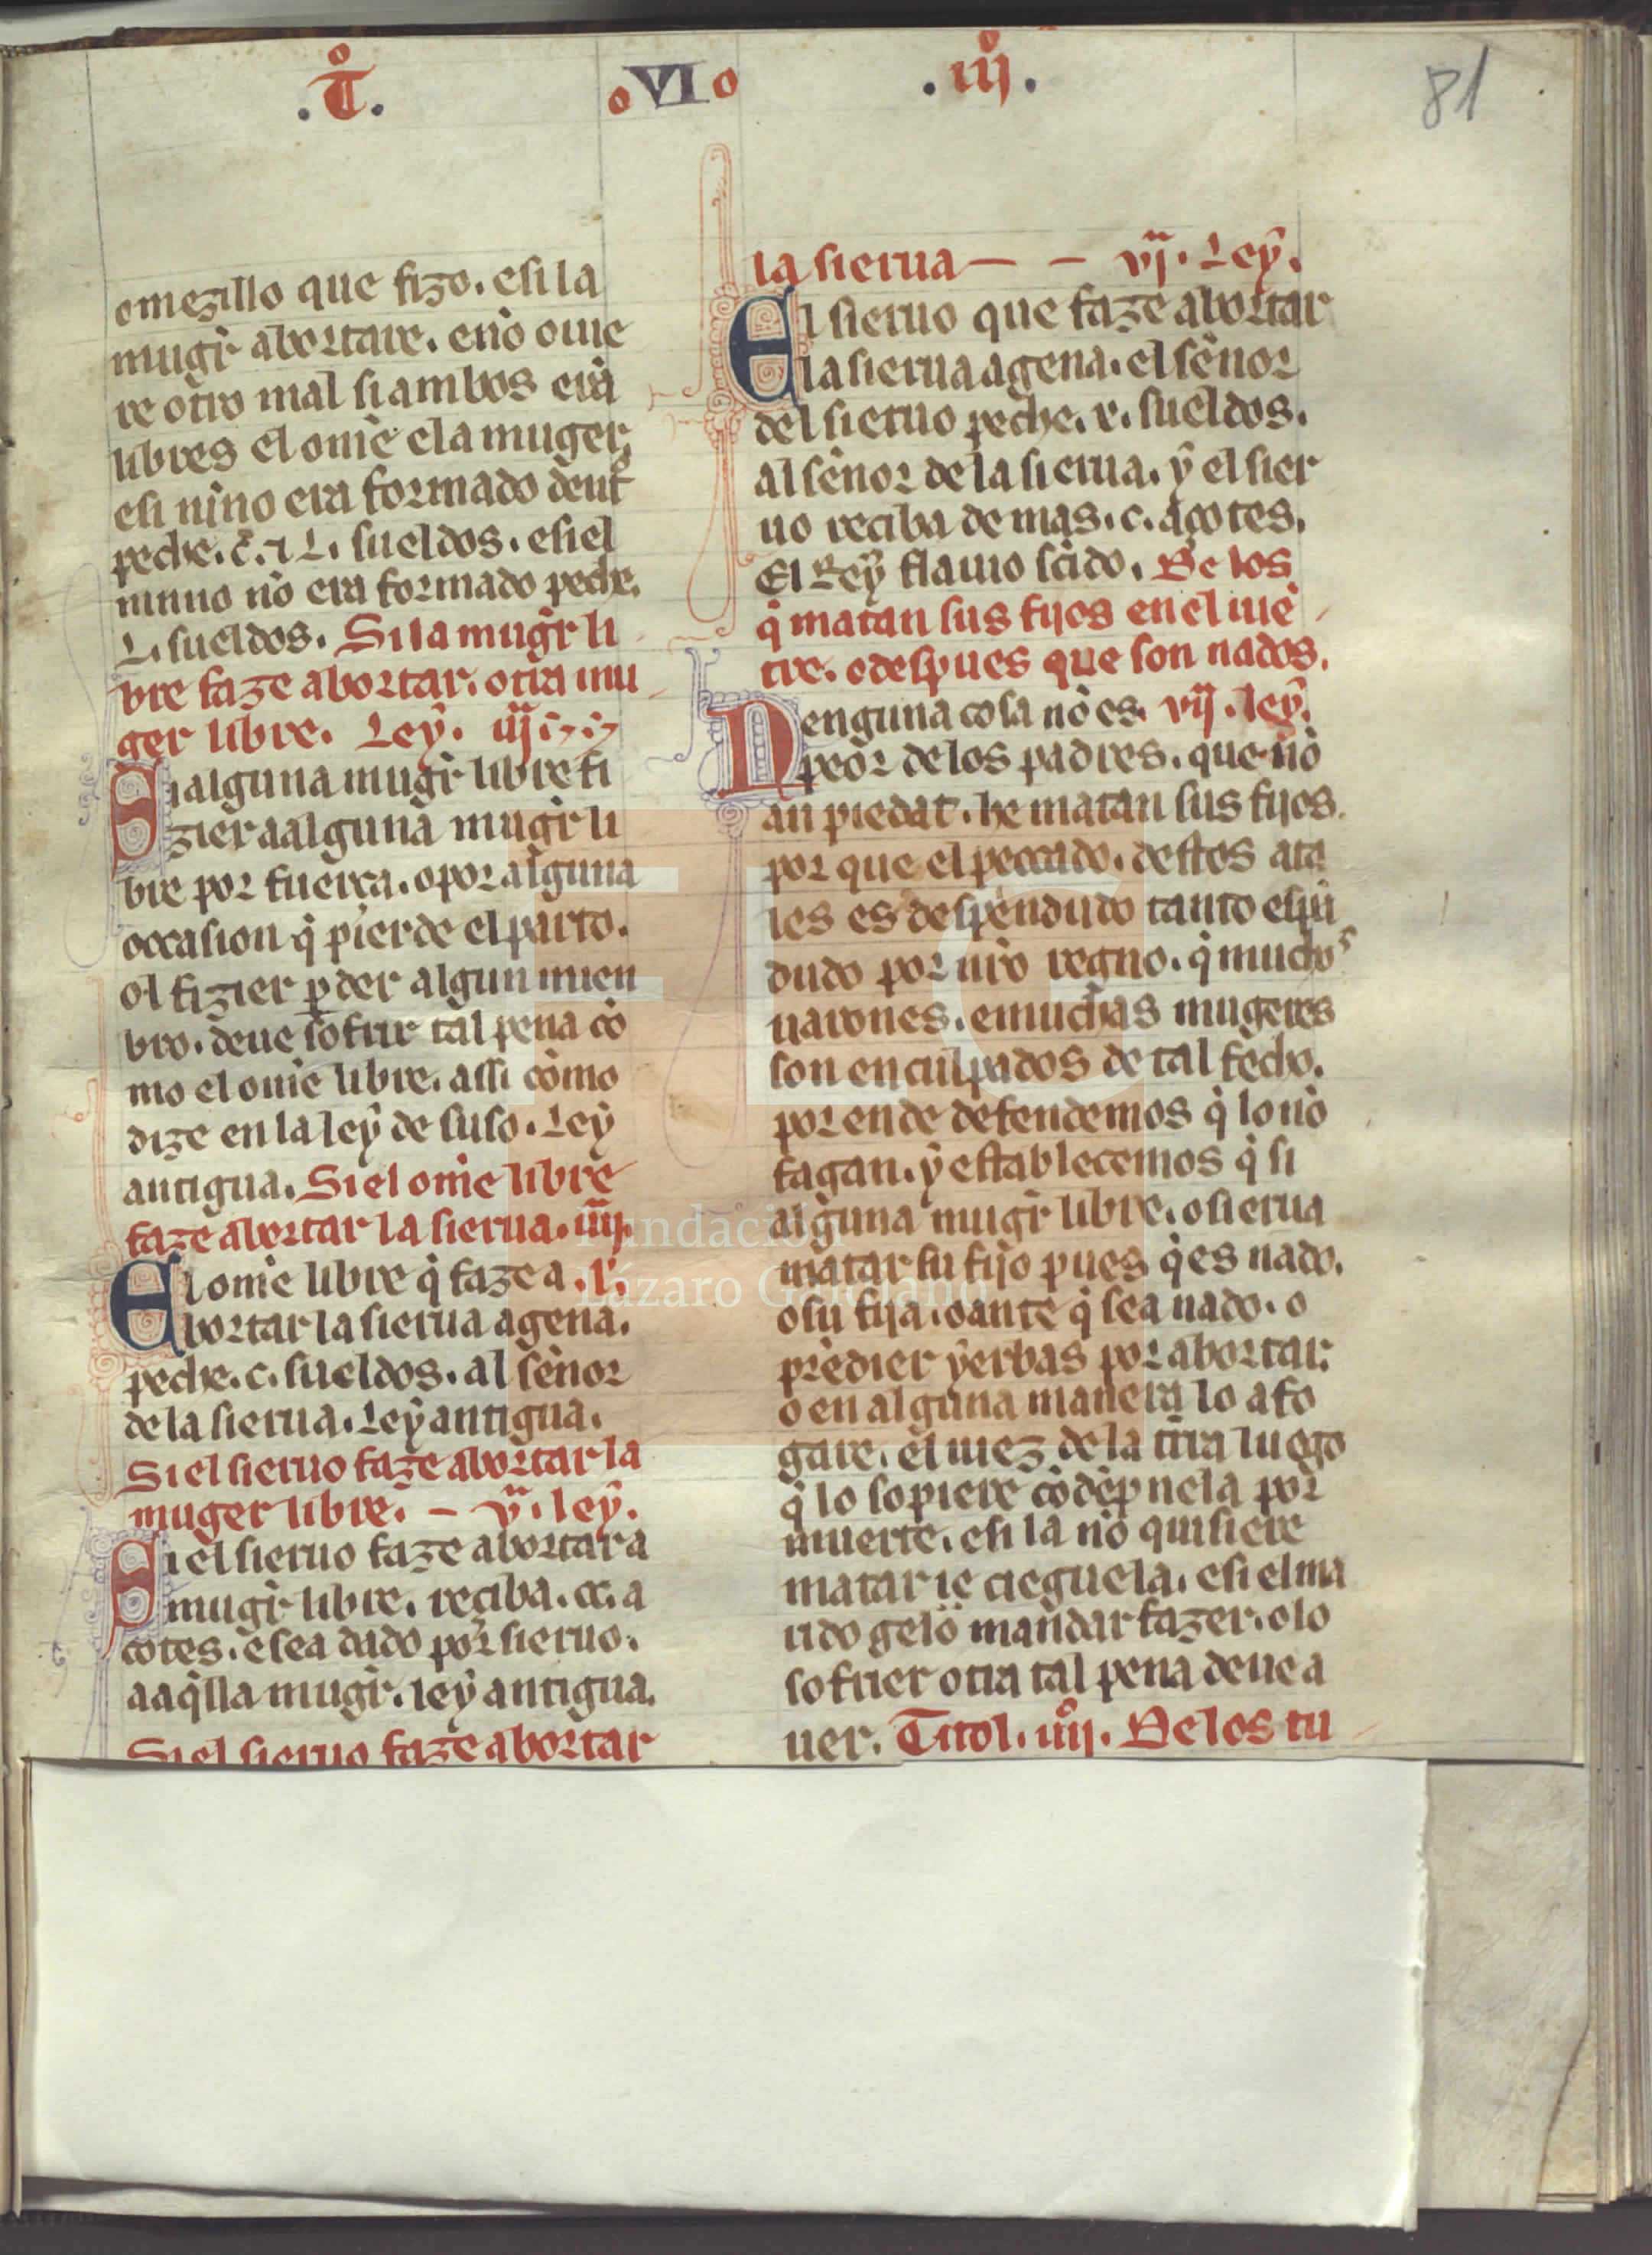 .T.º
º VI º
.iijº.
81
omezillo que fizo. e si la
mugr̃ abortare. e nõ ouie
re otro mal si ambos erã
libres el omẽ e la muger,
e si nĩno era formado dent̊
peche. c̃. ⁊ L. sueldos. e si el
ninno nõ era formado peche.
L. sueldos. Si la mugr̃ li
bre faze abortar. otra mu
ger libre. Ley. iij
Si alguna mugr̃ libre fi
ziera a alguna mugr̃ li
bre por fuerça. o por alguna
occasion q̃ pierde el parto.
ol fizier ꝑder algun mien
bro. deue sofrir tal pena co
mo el omẽ libre. assi cõmo
dize en la ley de suso. Ley
antigua. Si el omẽ libre
faze abortar la sierua. iiij.
El omẽ libre q̃ faze a. l'.
bortar la sierua agena.
peche. c. sueldos. al señor
de la sierua. Ley antigua.
Si el sieruo faze abortar la
muger libre. – v.ª ley.
Si el sieruo faze abortar a
mugr̃ libre. reciba. cc. a
cotes. e sea dado por sieruo.
a aq̃lla mugr̃. ley antigua.
Si el sieruo faze abortar
la sierua – – vj. Ley.
El sieruo que faze abortar
la sierua agena. el señor
del sieruo peche. x. sueldos.
al señor de la sierua. y el sier
uo reciba de mas. c. açotes.
El Rey flauio scĩdo. De los
q̃ matan sus fijos en el uiẽ
tre. o despues que son nados.
Nenguna cosa nõ es. vij. ley.
peor de los padres. que nõ
an piedat. he matan sus fijos.
por que el peccado. destos ata
les es despendudo tanto espã
dudo por nr̃o regno. q̃ muchos
uarones. e muchas mugeres
son enculpados de tal fecho.
por ende defendemos q̃ lo nõ
fagan. y establecemos q̃ si
alguna mugr̃ libre. o sierua
matar su fijo pues q̃ es nado.
o su fija. o ante q̃ sea nado. o
prẽdier yerbas por abortar.
o en alguna manera lo afo
gare. el iuez de la tr̃ra luego
q̃ lo sopiere cõdẽpnela por
muerte. e si la nõ quisiere
matar ie cieguela. e si el ma
rido gelo mandar fazer. o lo
sofrier otra tal pena deue a
uer. Titol. iiijº. De los tu
Fundación
Lázaro Galdiano